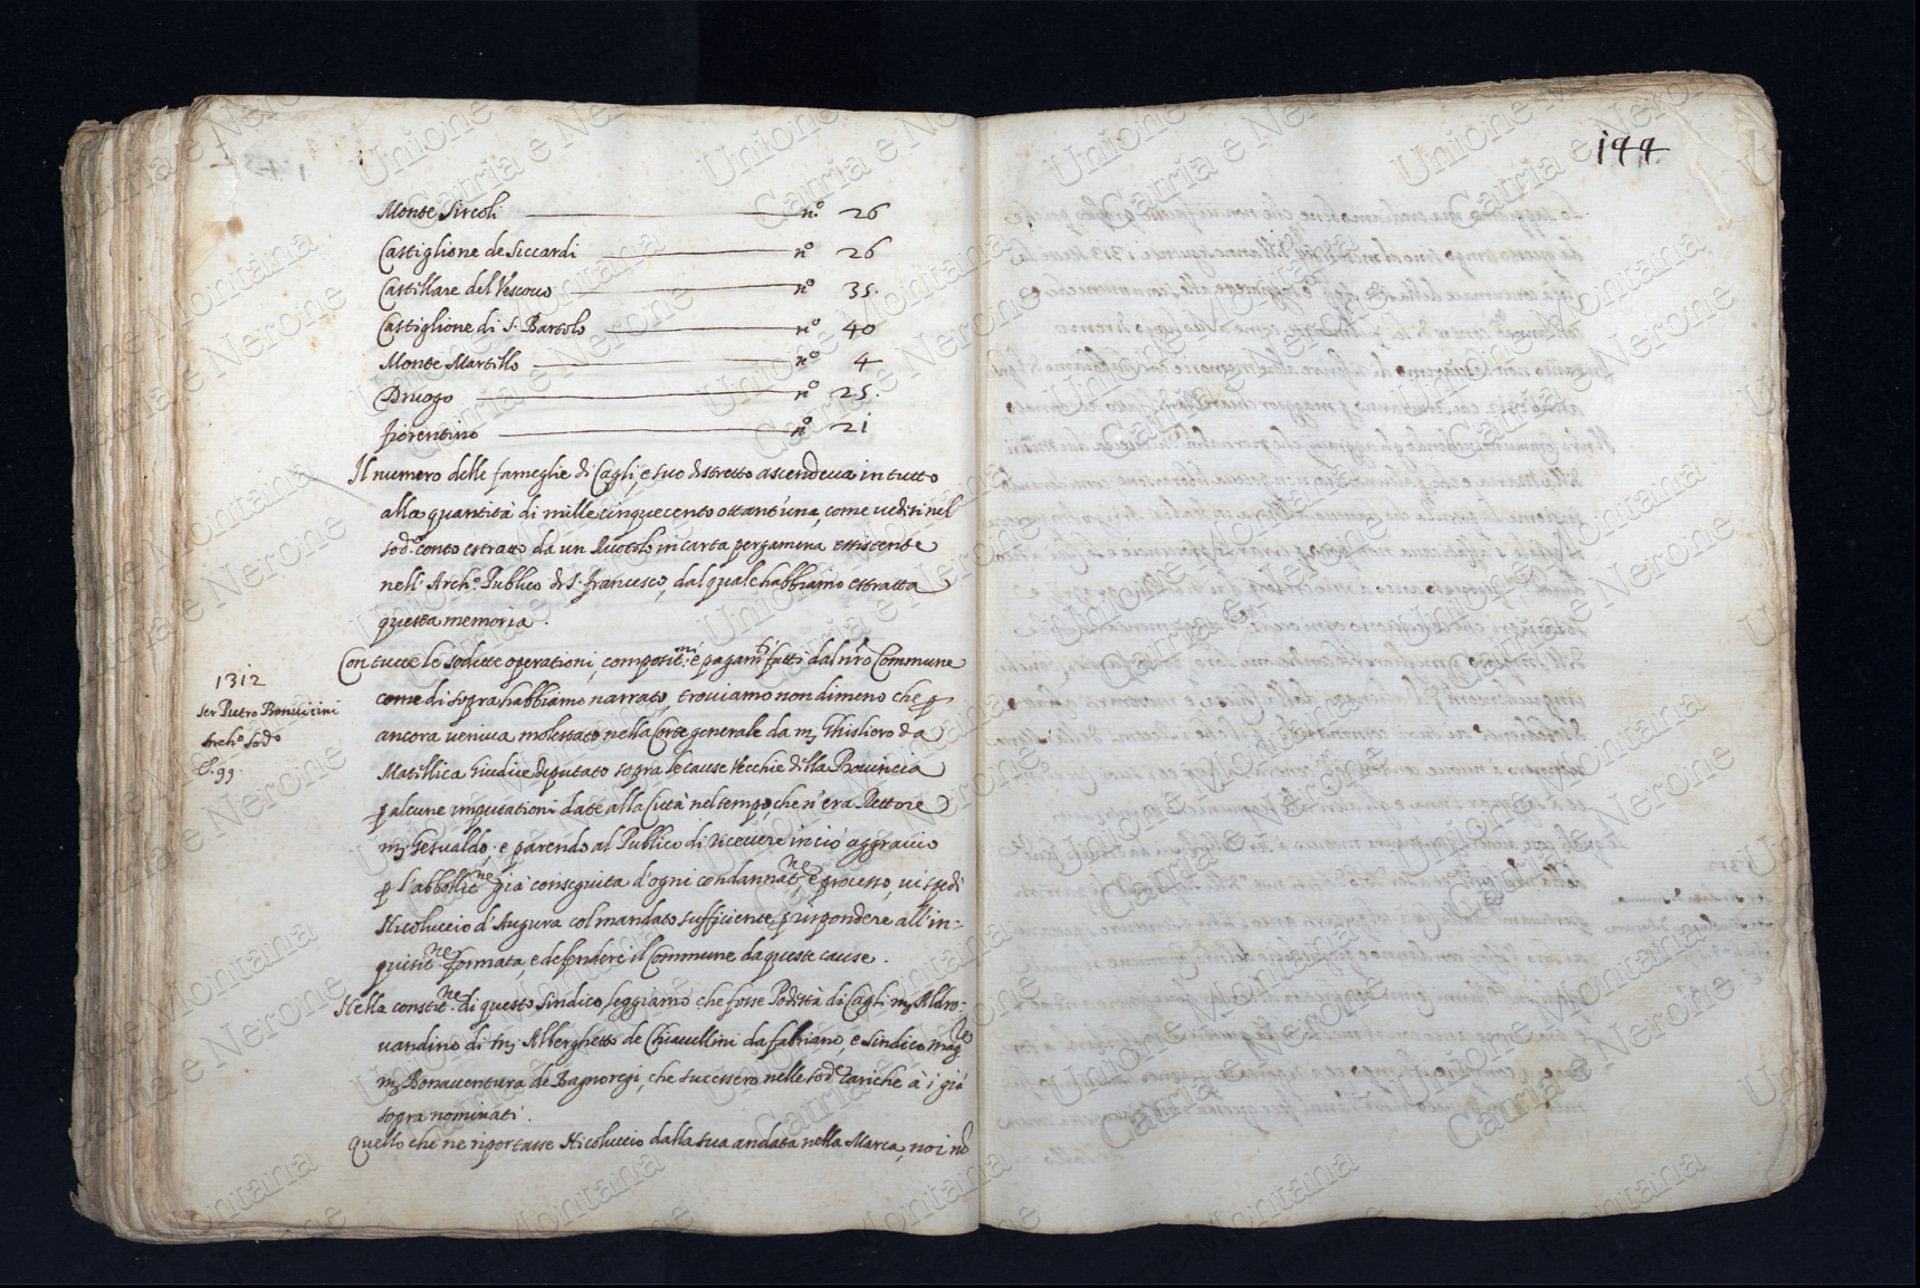 Monte Sircoli n.º 26
Castiglione de Siccardi nº 26
Castillare del Vescouo nº 35.
Castiglione di S. Bartolo nº 40
Monte Martello nº 4
Druogo nº 25.
fiorentino nº 21
Il numero delle fameglie di Cagli, e suo distretto ascendeua in tutto
alla quantità di mille cinquecento ottant'una, come uedesi nel
sodº conto estratto da un Ruotolo in carta pergamena essistente
nell' Archº Publico di S. francesco, dal quale habbiamo estratta
questa memoria.
Con tutte le sodette operationi, composit.ni e pagam.ti fatti dal nrō Commune
come di sopra habbiamo narrato, trouiamo nondimeno che p
ancora ueniua molestato nella Corte generale da mṣ Ghisliero da
Matillica Giudice deputato sopra le cause Vecchie della Prouincia
p alcune imputationi date alla Città nel tempo, che n'era Rettore
mṣ Gesualdo, e parendo al Publico di riceuere in ciò aggrauio
p l'abbollit.ne già conseguita d'ogni condannat.ne e processo, ui spedì
Nicoluccio d'Augura col mandato sufficiente p rispondere all'in-
quisit.ne formata, e defendere il Commune da queste cause.
Nella constit.ne di questo Sindico leggiamo che fosse Podestà di Cagli mṣ Aldro-
uandino di mṣ Alberghetto de Chiauellini da fabriano, e Sindico mag.re
mṣ Bonauentura de Bagnoregi, che successero nelle sod.e cariche à i già
sopra nominati.
Quello che ne riportasse Nicoluccio dalla sua andata nella Marca, noi nō
1312
ser Pietro Boniuicini
Archº sodº
P. 99.
144.
Unione Montana
Catria e Nerone